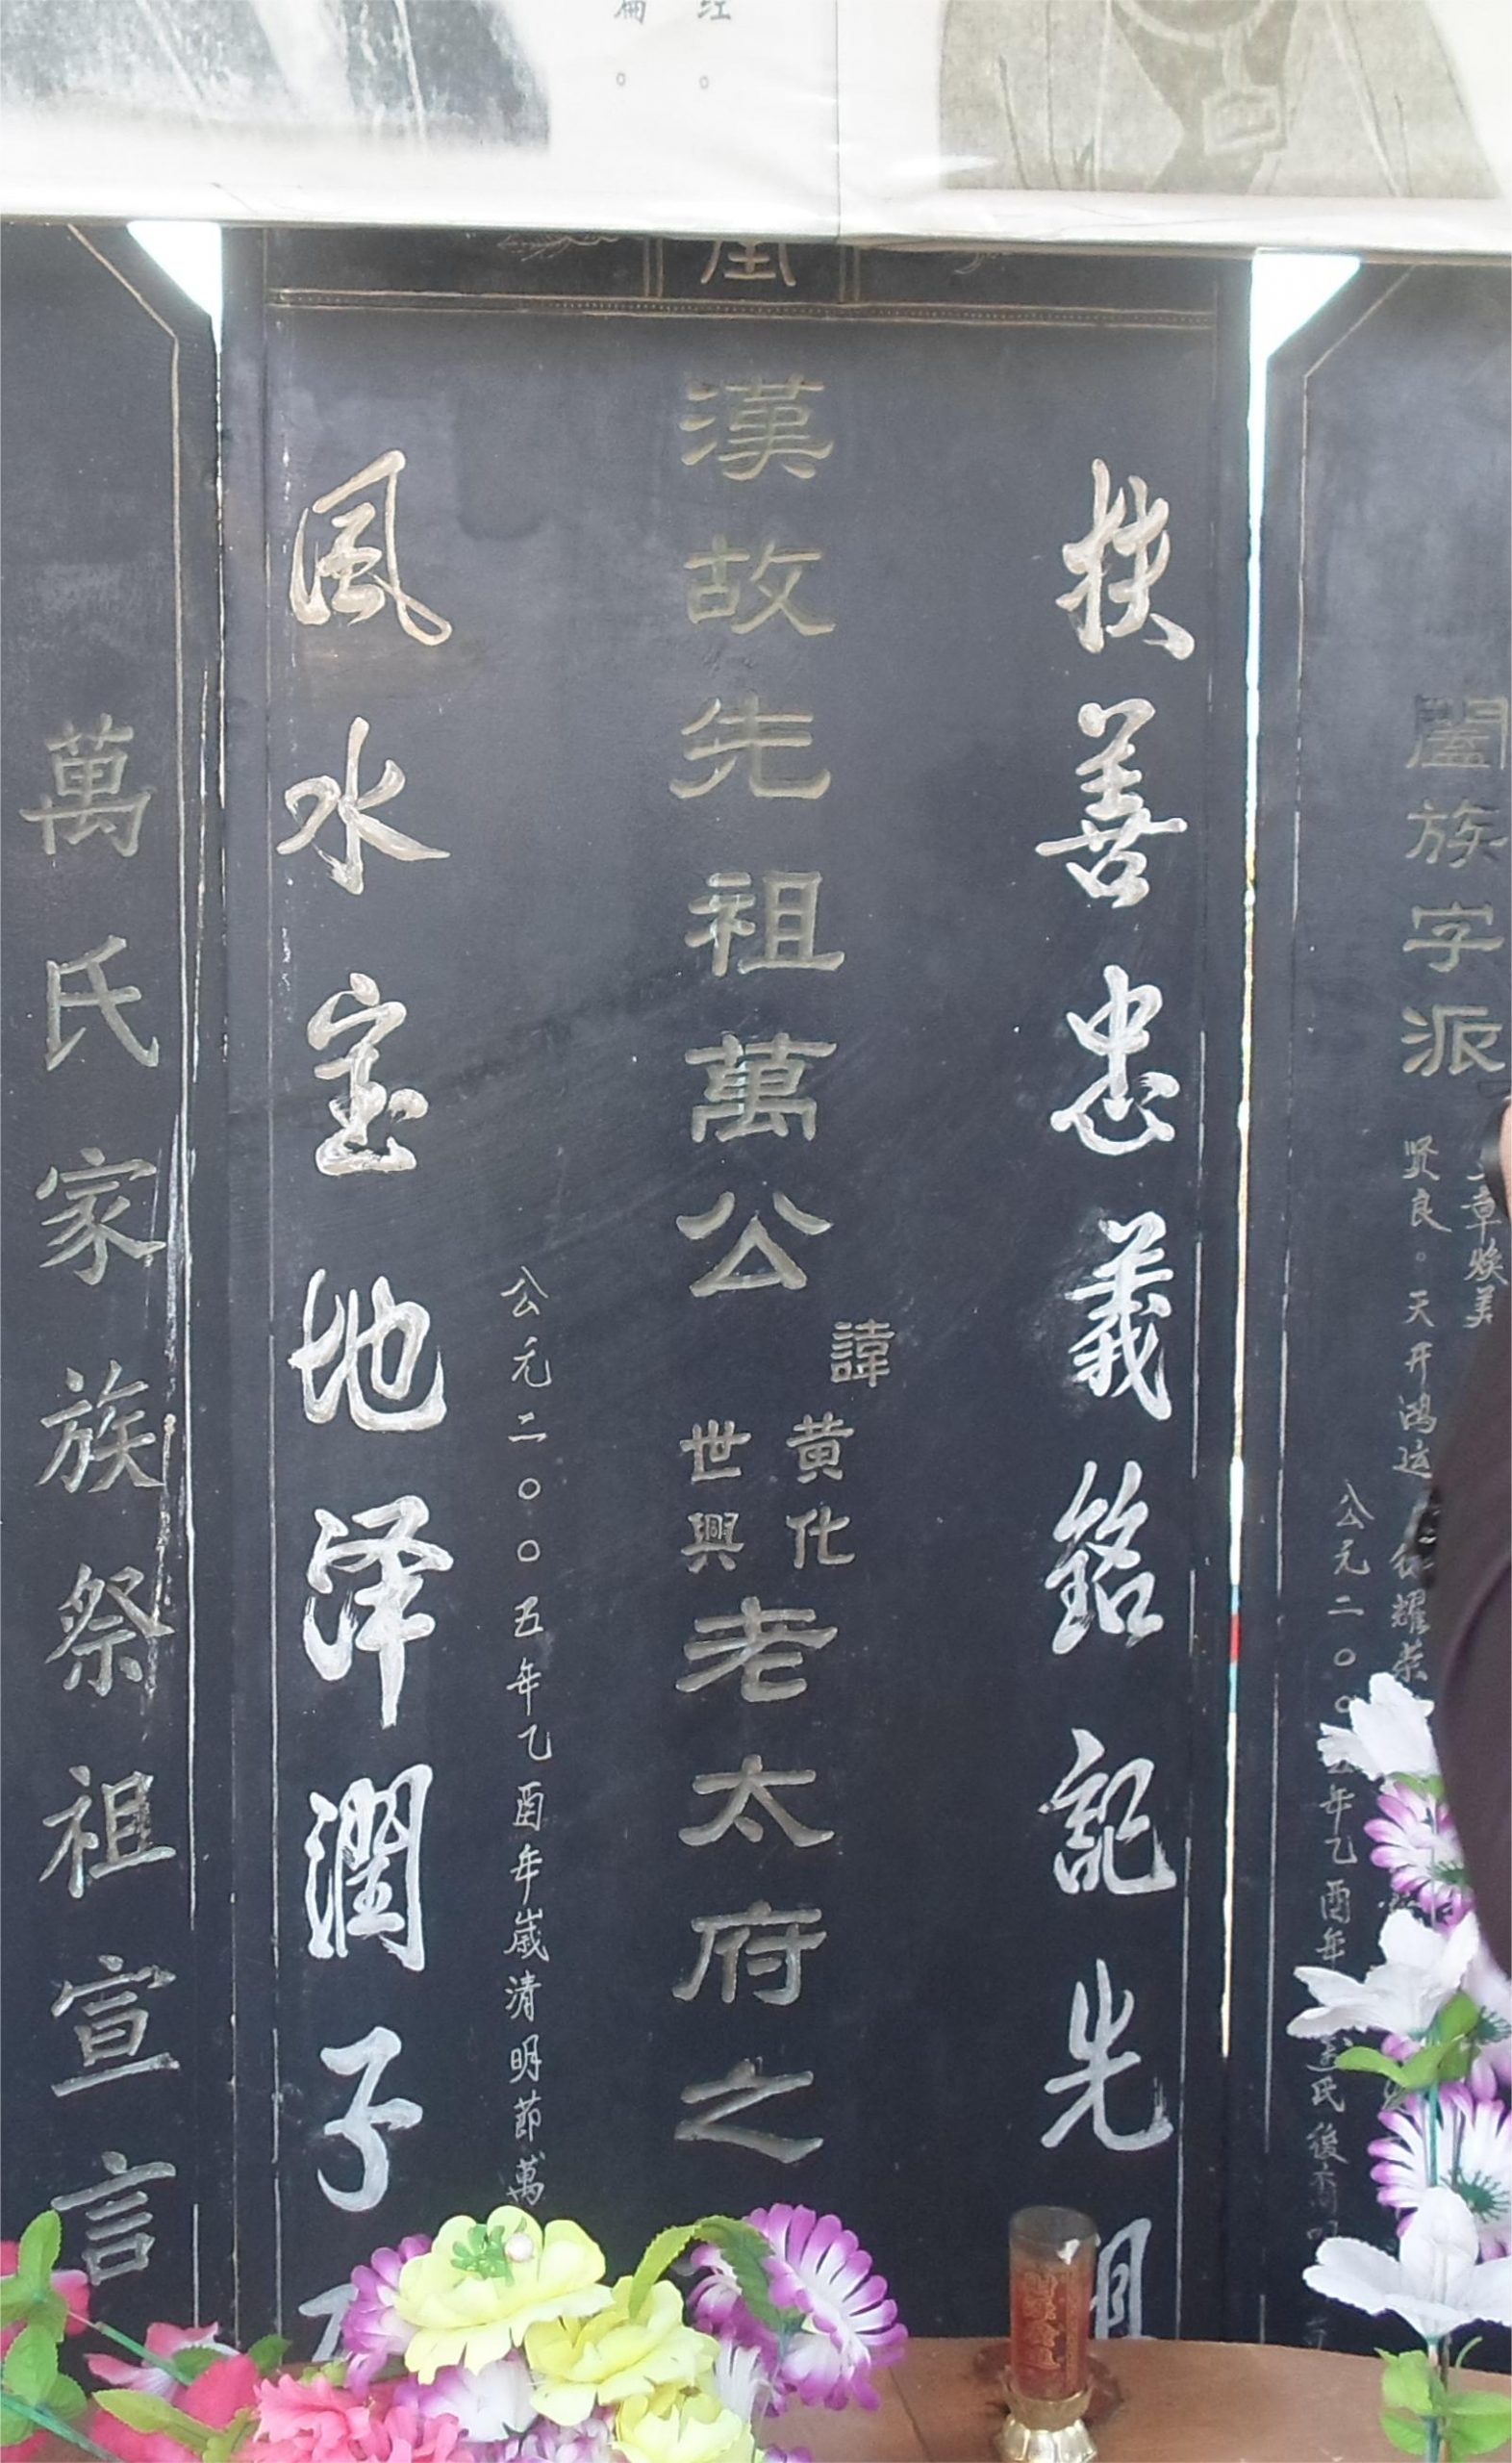 江。
闔族字派
章焕美
贤良。天开鸿运
耀荣
公元二〇〇
年乙酉年
氏後裔
扶善忠義銘記先祖
漢故先祖萬公
諱
黄化
世興
老太府之
公元二〇〇五年乙酉年歲清明節萬
風水宝地泽潤子
萬氏家族祭祖宣言